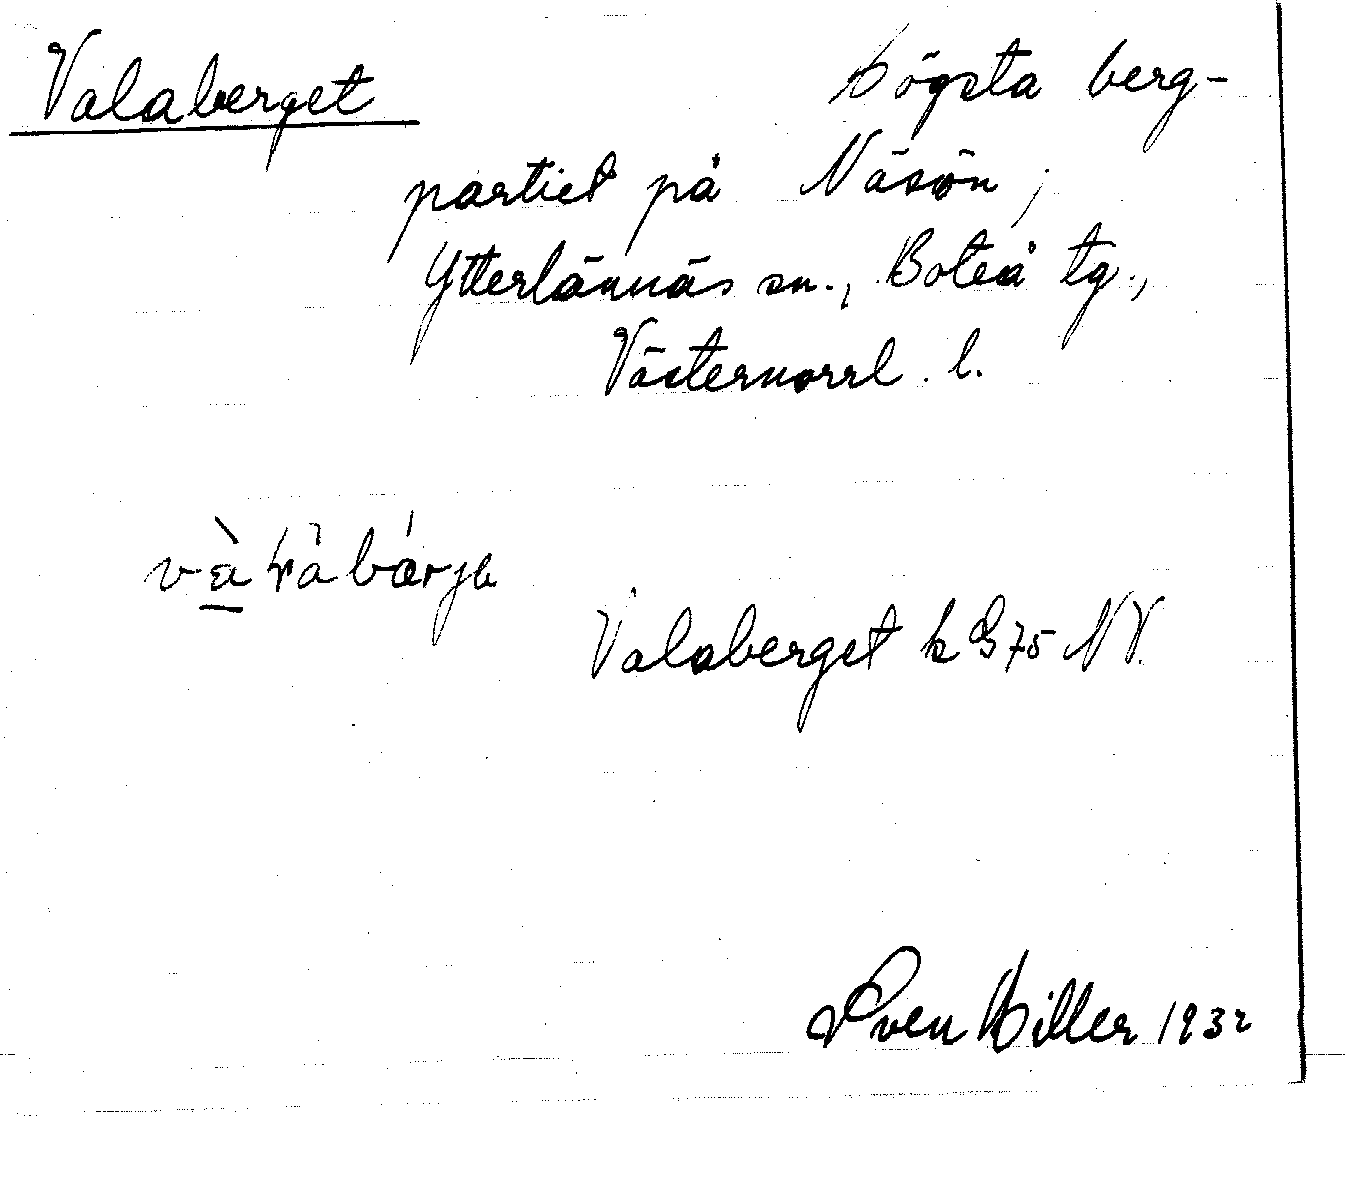 Valaberget Högsta berg-
partiet på Näsön,
Ytterlännäs sn., Boteå tg.,
Västernorrl. l.
Valaberget k G75 NV.
Sven Hiller 1932